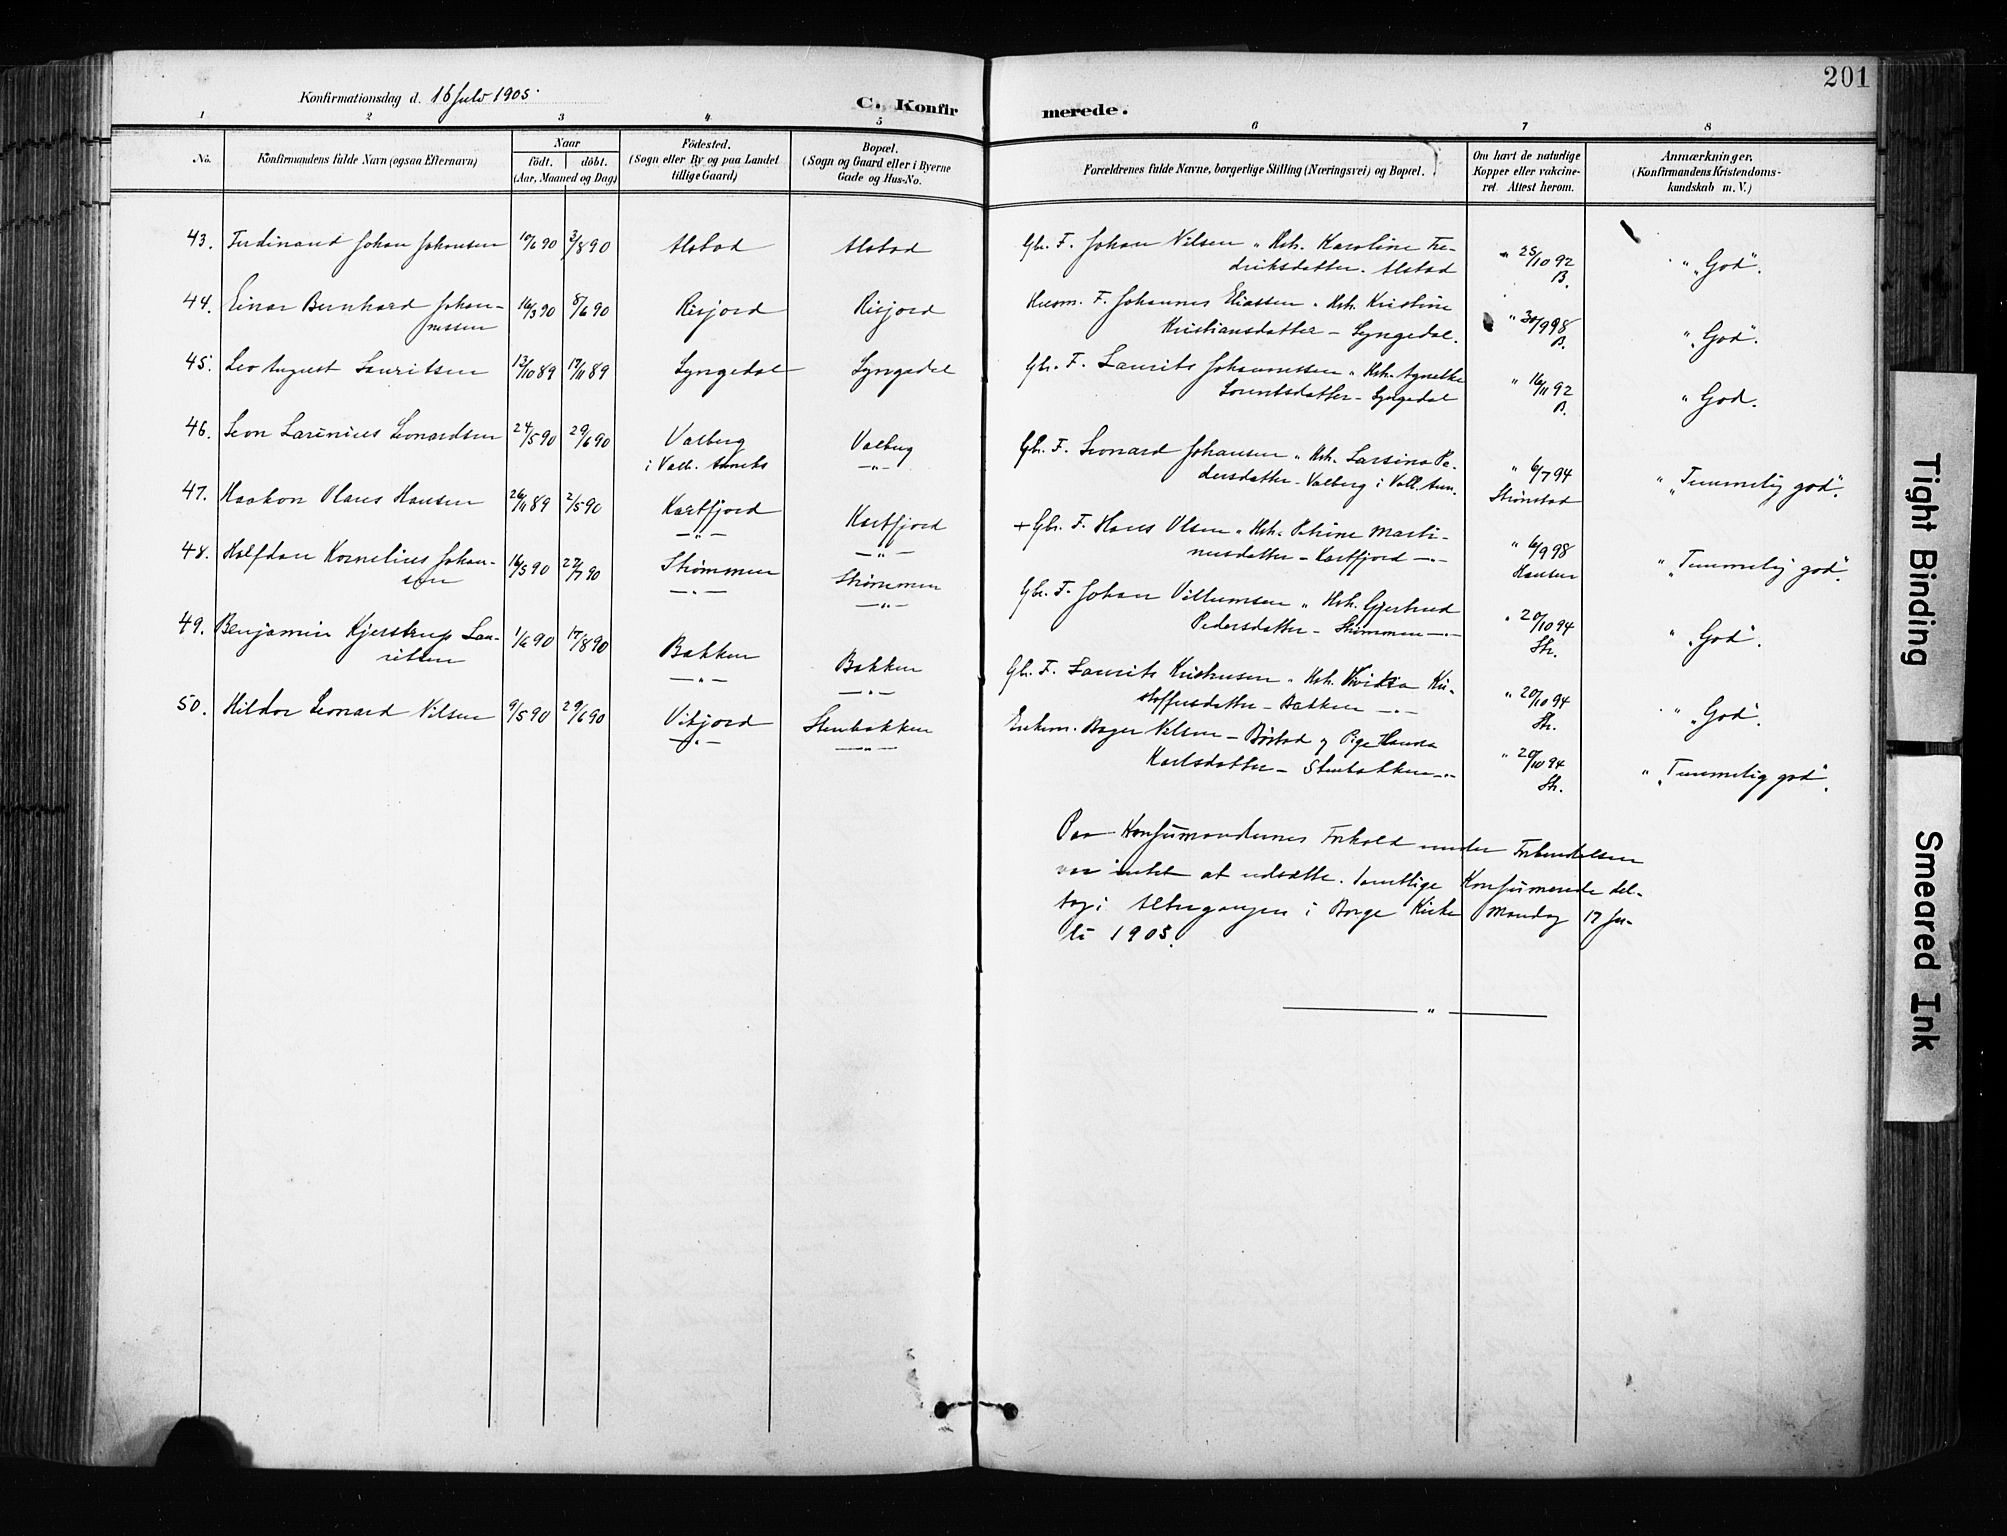 201
Konfirmationsdag d. 16 Juli 1905.
C. Konfirmerede.
1 2 3 4 5 6 7 8
No.
Konfirmandens fulde Navn (ogsaa Efternavn)
Naar
födt. döbt.
(Aar, Maaned og Dag)
Födested.
(Sogn eller By og paa Landet
tillige Gaard)
Bopæl.
(Sogn og Gaard eller i Byerne
Gade og Hus-No.
Forældrenes fulde Navne, borgerlige Stilling (Næringsvei) og Bopæl.
Om havt de naturlige
Kopper eller vakcine-
ret. Attest herom.
Anmærkninger.
(Konfirmandens Kristendoms-
kundskab m. V.)
43. Ferdinand Johan Johansen 10/6 90 3/8 90 Alstad Alstad Gbr. F. Johan Nilsen " Hst. Karoline Fre-
driksdatter. Alstad " 25/10 92 B. " "God".
44. Einar Bernhard Johan-
nessen 16/3 90 8/6 90 Risjord Risjord Husm. F. Johannes Eliassen " Hst. Kristine
Kristiansdatter - Lyngedal. " 30/9 98 B. " "God".
45. Leo August Lauritsen 13/10 89 17/11 89 Lyngedal Lyngedal Gbr. F. Laurits Johannessen " Hst. Agnethe
Lorentsdatter - Lyngedal " 16/11 92 B. " God.
46. Leon Larinius Leonardsen 24/5 90 29/6 90 Valberg
i Valb. Anneks Valberg
-"- Gbr. F. Leonard Johansen " Hst. Larsina Pe-
dersdatter - Valberg i Valb. Ann. " 6/7 94
Strömstad " "Temmelig god".
47. Haakon Olaus Hansen 26/11 89 2/5 90 Kartfjord
-"- Kartfjord
-"- + Gbr. F. Hans Olsen " Hst. Petrine Marti-
nusdatter - Kartfjord -"- " 6/9 98
Hansen " "Temmelig god".
48. Halfdan Kornelius Johan-
sen 16/5 90 27/7 90 Strømmen
-"- Strømmen
-"- Gbr. F. Johan Villumsen " Hst. Gjertrud
Pedersdatter - Strømmen -"- " 20/10 94
Str. " "God".
49. Benjamin Kjerstrup Lau-
ritsen 1/6 90 17/8 90 Bakken
-"- Bakken
-"- Gbr. F. Laurits Kristensen " Hst. Hvidia Kri-
stoffersdatter - Bakken -"- " 20/10 94
Str. " "God".
50. Hildor Leonard Nilsen 9/5 90 29/6 90 Vikjord
-"- Stenbakken
-"- Enkem. Roger Nilsen - Bøstad og Pige Hansa
Karlsdatter - Stenbakken -"- " 20/10 94
Str. " "Temmelig god".
Paa Konfirmandernes Forhold under Forberedelsen
var intet at udsætte. Samtlige Konfirmerede del-
tog i Altergangen i Borge Kirke Mandag 17 Ju-
li 1905.
"
Tight Binding
Smeared Ink